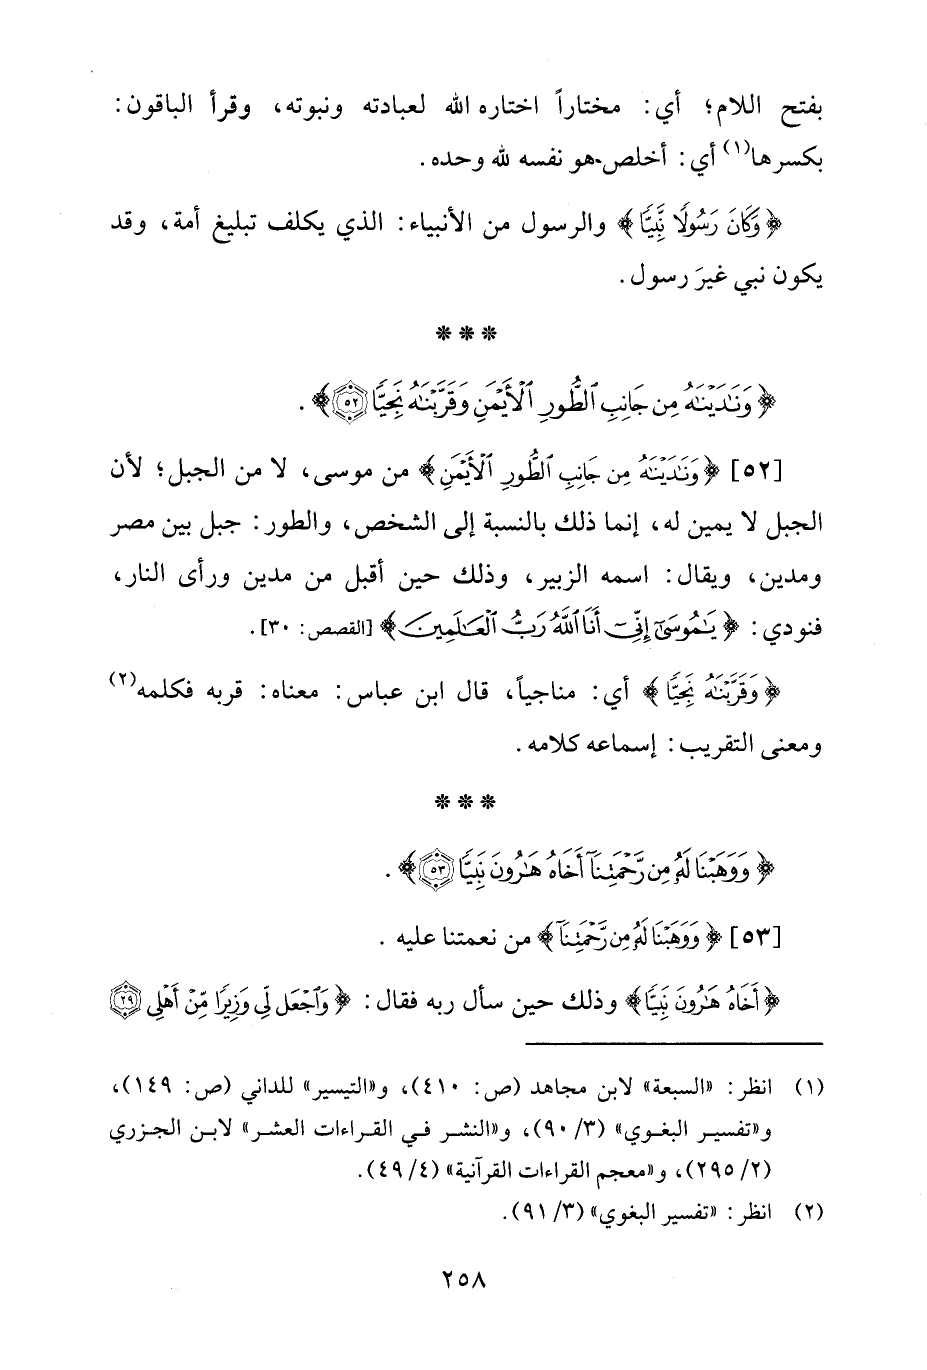 بفتح اللام؛ أي: مختاراً اختاره الله لعبادته ونبوته، وقرأ الباقون:
بكسرها(١) أي: أخلص هو نفسه لله وحده.
﴿وَكَانَ رَسُولًا نَّبِيًّا﴾ والرسول من الأنبياء: الذي يكلف تبليغ أمة، وقد
يكون نبي غيرَ رسول.
* * *
﴿وَنَٰدَيْنَٰهُ مِن جَانِبِ ٱلطُّورِ ٱلْأَيْمَنِ وَقَرَّبْنَٰهُ نَجِيًّا ٥٢﴾.
[٥٢] ﴿وَنَٰدَيْنَٰهُ مِن جَانِبِ ٱلطُّورِ ٱلْأَيْمَنِ﴾ من موسى، لا من الجبل؛ لأن
الجبل لا يمين له، إنما ذلك بالنسبة إلى الشخص، والطور: جبل بين مصر
ومدين، ويقال: اسمه الزبير، وذلك حين أقبل من مدين ورأى النار،
فنودي: ﴿يَٰمُوسَىٰٓ إِنِّىٓ أَنَا ٱللَّهُ رَبُّ ٱلْعَٰلَمِينَ﴾ [القصص: ٣٠].
﴿وَقَرَّبْنَٰهُ نَجِيًّا﴾ أي: مناجياً، قال ابن عباس: معناه: قربه فكلمه(٢)
ومعنى التقريب: إسماعه كلامه.
* * *
﴿وَوَهَبْنَا لَهُۥ مِن رَّحْمَتِنَآ أَخَاهُ هَٰرُونَ نَبِيًّا ٥٣﴾.
[٥٣] ﴿وَوَهَبْنَا لَهُۥ مِن رَّحْمَتِنَآ﴾ من نعمتنا عليه.
﴿أَخَاهُ هَٰرُونَ نَبِيًّا﴾ وذلك حين سأل ربه فقال: ﴿وَٱجْعَل لِّى وَزِيرًا مِّنْ أَهْلِى ٢٩
(١) انظر: «السبعة» لابن مجاهد (ص: ٤١٠)، و«التيسير» للداني (ص: ١٤٩)،
و«تفسير البغوي» (٣/ ٩٠)، و«النشر في القراءات العشر» لابن الجزري
(٢/ ٢٩٥)، و«معجم القراءات القرآنية» (٤/ ٤٩).
(٢) انظر: «تفسير البغوي» (٣/ ٩١).
٢٥٨